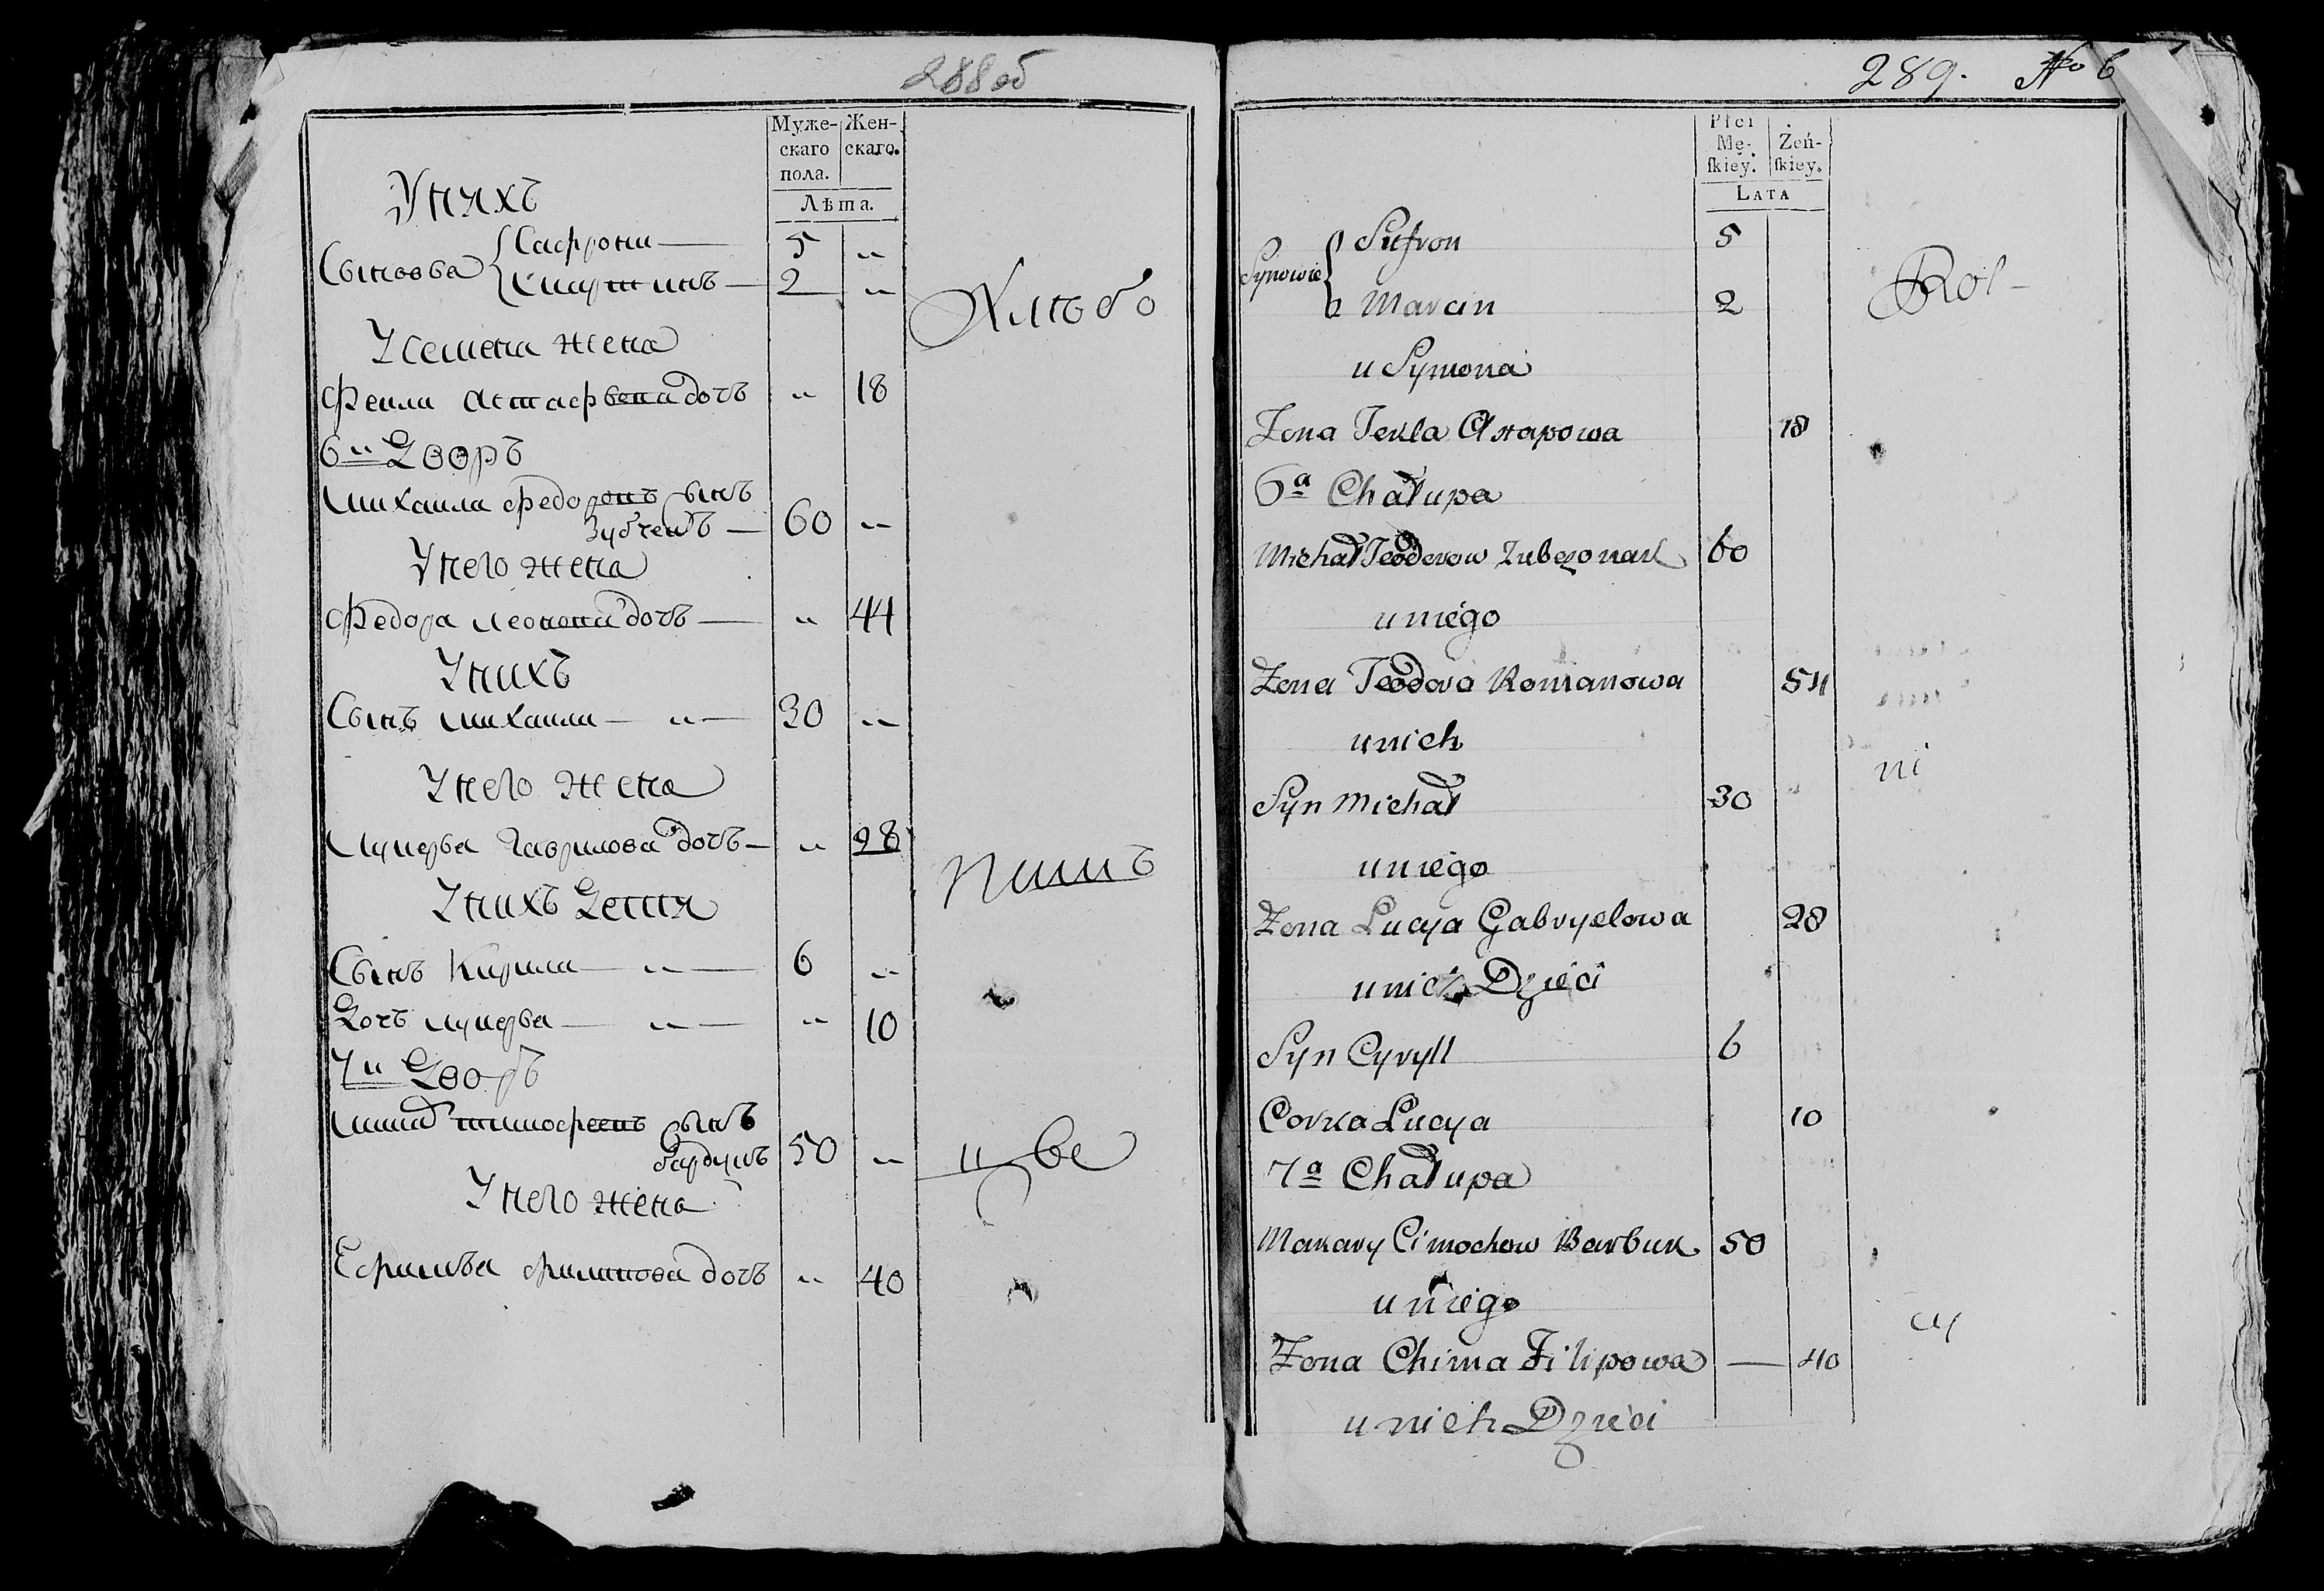 288 об
Муже-
скаго
пола.
Жен-
скаго.
Лѣта.
У нихъ
Сыновья
Сафронъ — 5 „
Мартинъ — 2 „
У Семена жена
Фекла Астафьева дочь „ 18
Хлѣбо
6й Дворъ
Михаила Федоровъ сынъ
Зубченъ — 60 „
У него жена
Федора дочь — „ 44
У нихъ
Сынъ Михаила — „ — 30 „
У него жена
Лукерья Гаврилова дочь — „ 28
пашъ
У нихъ Дети
Сынъ Кирила — „ — 6 „
Дочь Лукерья — „ — „ 10
7й Дворъ
Тимофеевъ сынъ
50 „
У него жена
Филипова дочь „ 40
289. № 6
Płci
Mę-
ſkiey.
Żeń-
ſkiey.
LATA
Synowie
Sufron 5
Marcin 2
Rol-
u Symona
Zona Tekla Astapowa 18
6a Chałupa
Michał Teodorow Zubczonak 60
u niego
Zona Teodora Romanowa 54
u nich
ni
Syn Michał 30
u niego
Zona Lucya Gabryelowa 28
u nich Dzieci
Syn Cyryll 6
Corka Lucya 10
7a Chałupa
Makary Cimochow Barbuk 50
u niego
cy
Zona Chima Filipowa — 40
u nich Dzieci